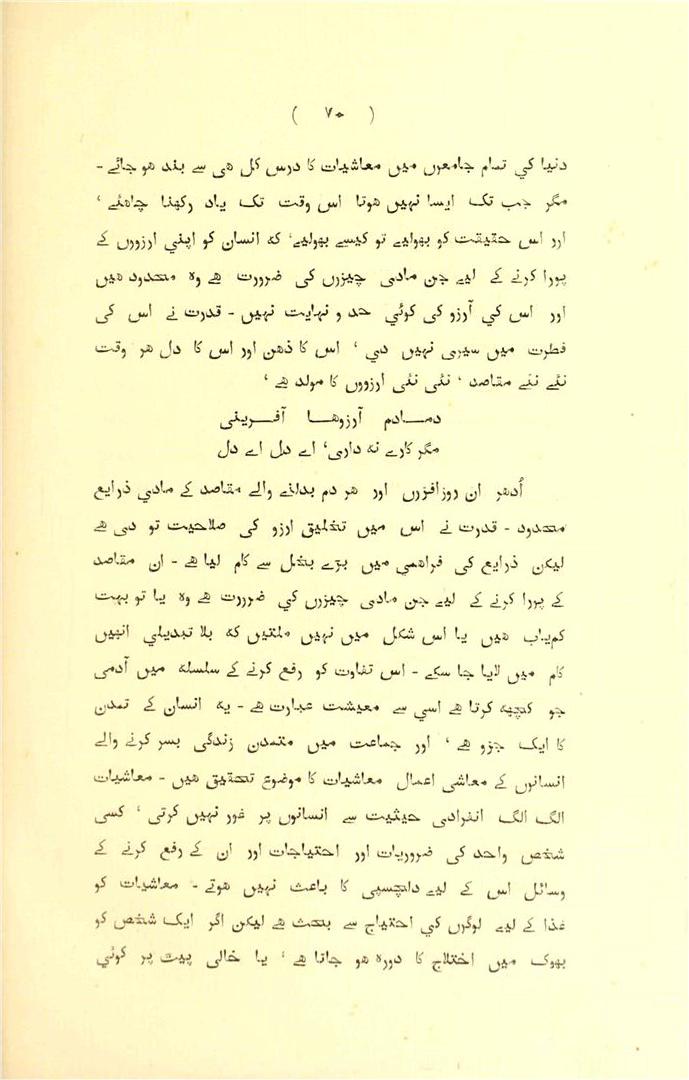 ( ٧٠ )
دنیا کي تمام جامعوں میں معاشیات کا درس کل هی سے بند هو جائے -
مگر جب تک ایسا نہیں هوتا اس وقت تک یاد رکھنا چاهئے ،
اور اس حقیقت کو بھولیے تو کیسے بھولیے، که انسان کو اپنی ارزوں کے
پورا کرنے کے لیے جن مادی چیزوں کی ضرورت هے وہ محدود هیں
اور اس کي آرزو کی کوئي حد و نہایت نہیں - قدرت نے اس کی
فطرت میں سیری نہیں دي ، اس کا ذهن اور اس کا دل هر وقت
نئے نئے مقاصد ، نئی نئی ارزووں کا مولد هے ،
دمادم آرزوها آفرینی
مگر کارے نه داری، اے دل اے دل
اُدهر ان روزافزوں اور هر دم بدلنے والے مقاصد کے مادي ذرایع
محدود - قدرت نے اس میں تخلیق ارزو کی صلاحیت تو دی هے
لیکن ذرایع کی فراهمی میں بڑے بخل سے کام لیا هے - ان مقاصد
کے پورا کرنے کے لیے جن مادی چیزوں کي ضرورت هے وہ یا تو بہت
کمیاب هیں یا اس شکل میں نہیں ملتیں که بلا تبدیلی انہیں
کام میں لایا جا سکے - اس تفاوت کو رفع کرنے کے سلسله میں آدمی
جو کچھه کرتا هے اسی سے معیشت عبارت هے - یه انسان کے تمدن
کا ایک جزو هے ، اور جماعت میں متمدن زندگی بسر کرنے والے
انسانوں کے معاشی اعمال معاشیات کا موضوع تحقیق هیں - معاشیات
الگ الگ انفرادی حیثیت سے انسانوں پر غور نہیں کرتی ، کسی
شخص واحد کی ضروریات اور احتیاجات اور ان کے رفع کرنے کے
وسائل اس کے لیے دلچسپی کا باعث نہیں هوتے - معاشیات کو
غذا کے لیے لوگوں کي احتیاج سے بحث هے لیکن اگر ایک شخص کو
بھوک میں اختلاج کا دورہ هو جاتا هے ، یا خالی پیٹ پر کوئي